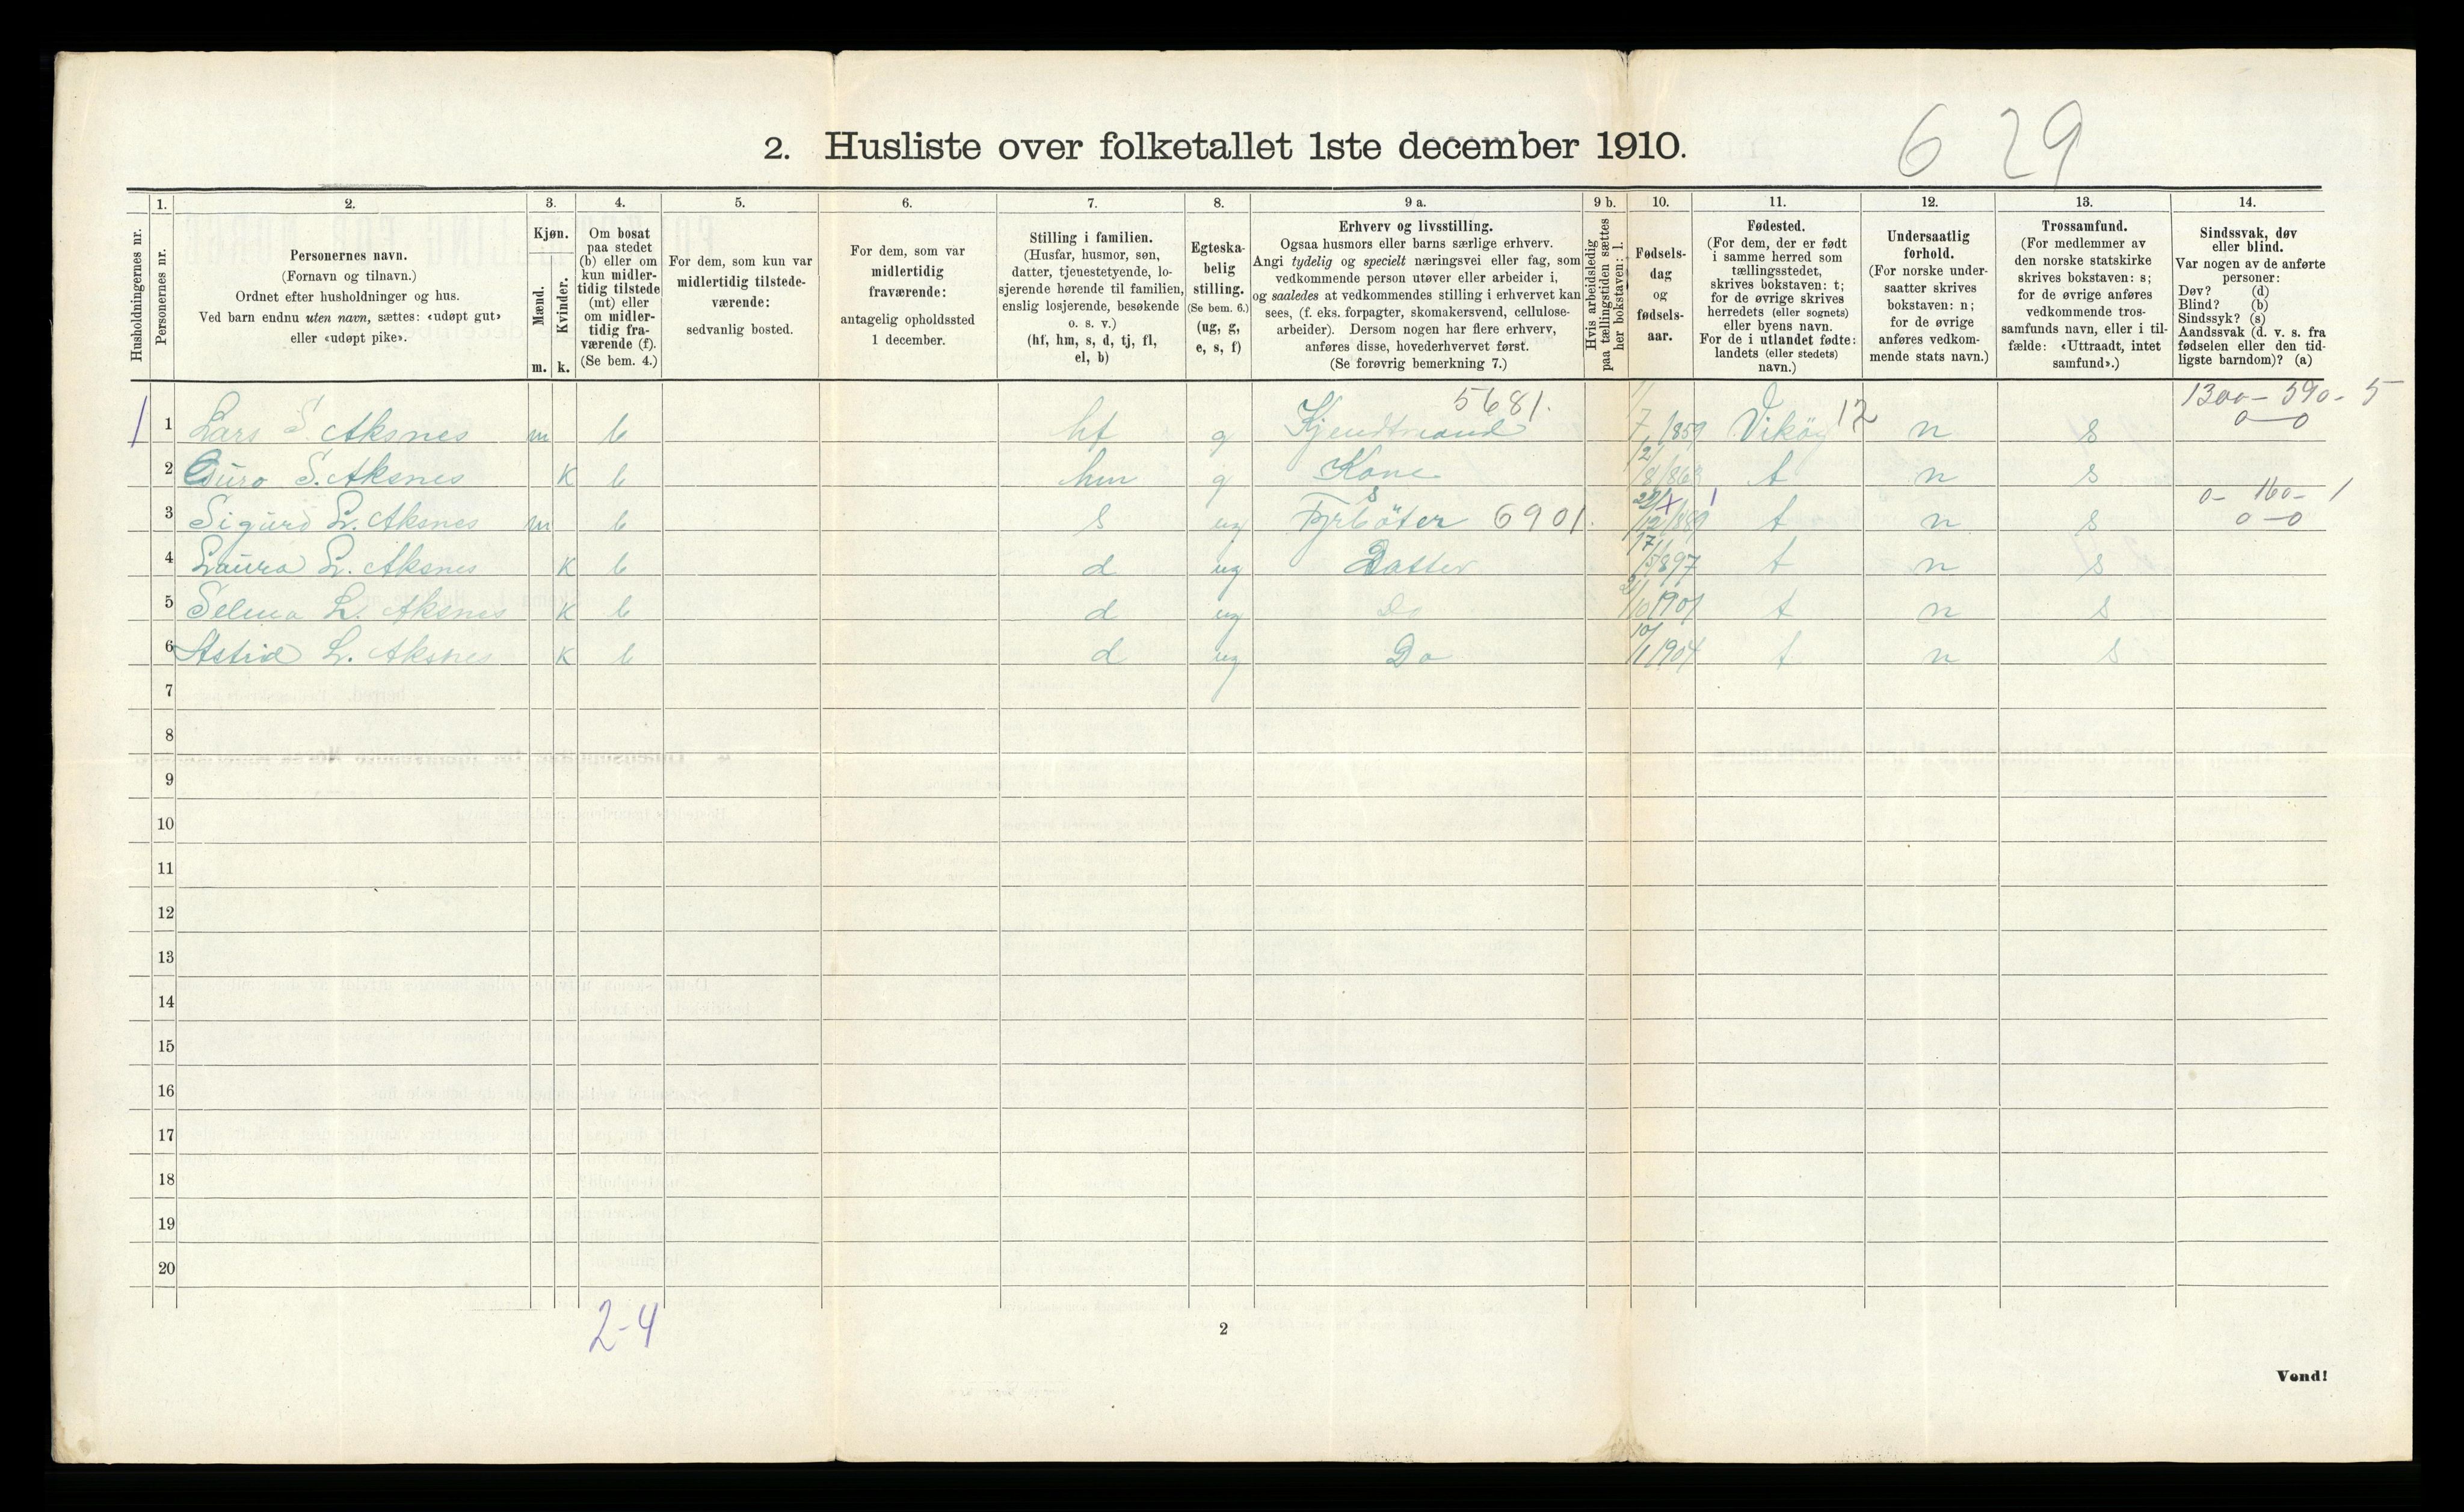 2. Husliste over folketallet 1ste december 1910.
6 29
Husholdningernes nr.
1.
Personernes nr.
2.
Personernes navn.
(Fornavn og tilnavn.)
Ordnet efter husholdninger og hus.
Ved barn endnu uten navn, sættes: «udøpt gut»
eller «udøpt pike».
3.
Kjøn.
Mænd.
Kvinder.
m. k.
4.
Om bosat
paa stedet
(b) eller om
kun midler-
tidig tilstede
(mt) eller
om midler-
tidig fra-
værende (f).
(Se bem. 4.)
5.
For dem, som kun var
midlertidig tilstede-
værende:
sedvanlig bosted.
6.
For dem, som var
midlertidig
fraværende:
antagelig opholdssted
1 december.
7.
Stilling i familien.
(Husfar, husmor, søn,
datter, tjenestetyende, lo-
sjerende hørende til familien,
enslig losjerende, besøkende
o. s. v.)
(hf, hm, s, d, tj, fl,
el, b)
8.
Egteska-
belig
stilling.
(Se bem. 6.)
(ug, g,
e, s, f)
9 a.
Erhverv og livsstilling.
Ogsaa husmors eller barns særlige erhverv.
Angi tydelig og specielt næringsvei eller fag, som
vedkommende person utøver eller arbeider i,
og saaledes at vedkommendes stilling i erhvervet kan
sees, (f. eks. forpagter, skomakersvend, cellulose-
arbeider). Dersom nogen har flere erhverv,
anføres disse, hovederhvervet først.
(Se forøvrig bemerkning 7.)
9 b.
Hvis arbeidsledig
paa tællingstiden sættes
her bokstaven: l.
10.
Fødsels-
dag
og
fødsels-
aar.
11.
Fødested.
(For dem, der er født
i samme herred som
tællingsstedet,
skrives bokstaven: t;
for de øvrige skrives
herredets (eller sognets)
eller byens navn.
For de i utlandet fødte:
landets (eller stedets)
navn.)
12.
Undersaatlig
forhold.
(For norske under-
saatter skrives
bokstaven: n;
for de øvrige
anføres vedkom-
mende stats navn.)
13.
Trossamfund.
(For medlemmer av
den norske statskirke
skrives bokstaven: s;
for de øvrige anføres
vedkommende tros-
samfunds navn, eller i til-
fælde: «Uttraadt, intet
samfund».)
14.
Sindssvak, døv
eller blind.
Var nogen av de anførte
personer:
Døv? (d)
Blind? (b)
Sindssyk? (s)
Aandssvak (d. v. s. fra
fødselen eller den tid-
ligste barndom)? (a)
5681. 1300 - 590 - 5
1 1 Lars S. Aksnes m b hf g 7/1859 Vikøy 12 n s 0-0
2 Guro S. Aksnes k b hm g Kone n s
0- 160- 1
3 Sigurd L. Aksnes m b s ug 6901. t n s 0-0
4 Laura L. Aksnes k b d ug Datter 17/5 1897 t n s
5 Selma L. Aksnes k b d ug Do t n s
6 Astrid L. Aksnes k b d ug Do 10/1 1904 t n s
7
8
9
10
11
12
13
14
15
16
17
18
19
20
2-4
2
Vend!